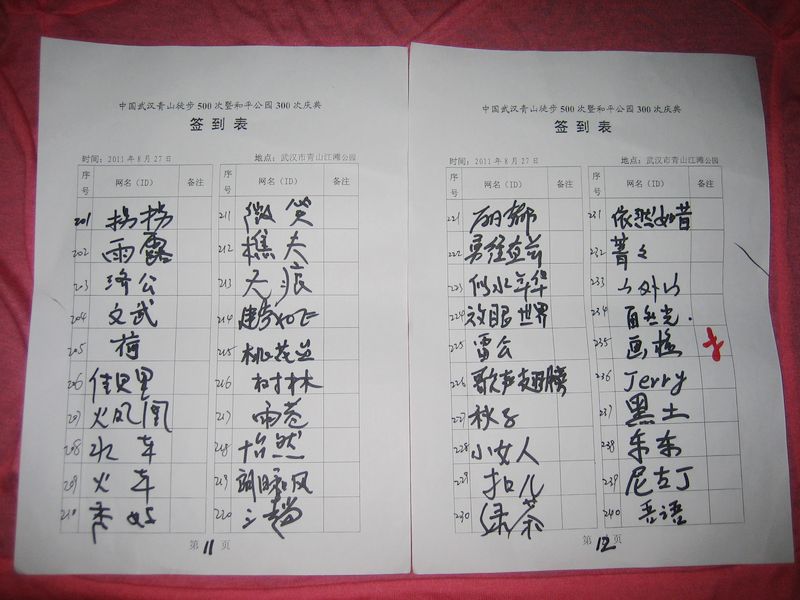 中国武汉青山徒步500次暨和平公园300次庆典
签到表
时间：2011年8月27日 地点：武汉市青山江滩公园
序号 网名（ID） 备注 序号 网名（ID） 备注
201 拐拐 211 微笑
202 雨露 212 樵夫
203 洚公 213 无痕
204 文武 214 健步如飞
205 荷 215 桃花兰
206 佳贝里 216 树林
207 火凤凰 217 雨苍
208 水车 218 怡然
209 火车 219
210 220
第11页
中国武汉青山徒步500次暨和平公园300次庆典
签到表
时间：2011年8月27日 地点：武汉市青山江滩公园
序号 网名（ID） 备注 序号 网名（ID） 备注
221 丽都 231 依然如昔
222 勇往直前 232 菁々
223 似水年华 233 山外山
224 放眼世界 234 自然光.
225 雷公 235 画楼
226 歌声翅膀 236 Jerry
227 秋子 237 黑土
228 小女人 238 东东
229 扣儿 239 尼古丁
230 绿茶 240 吾语
第12页